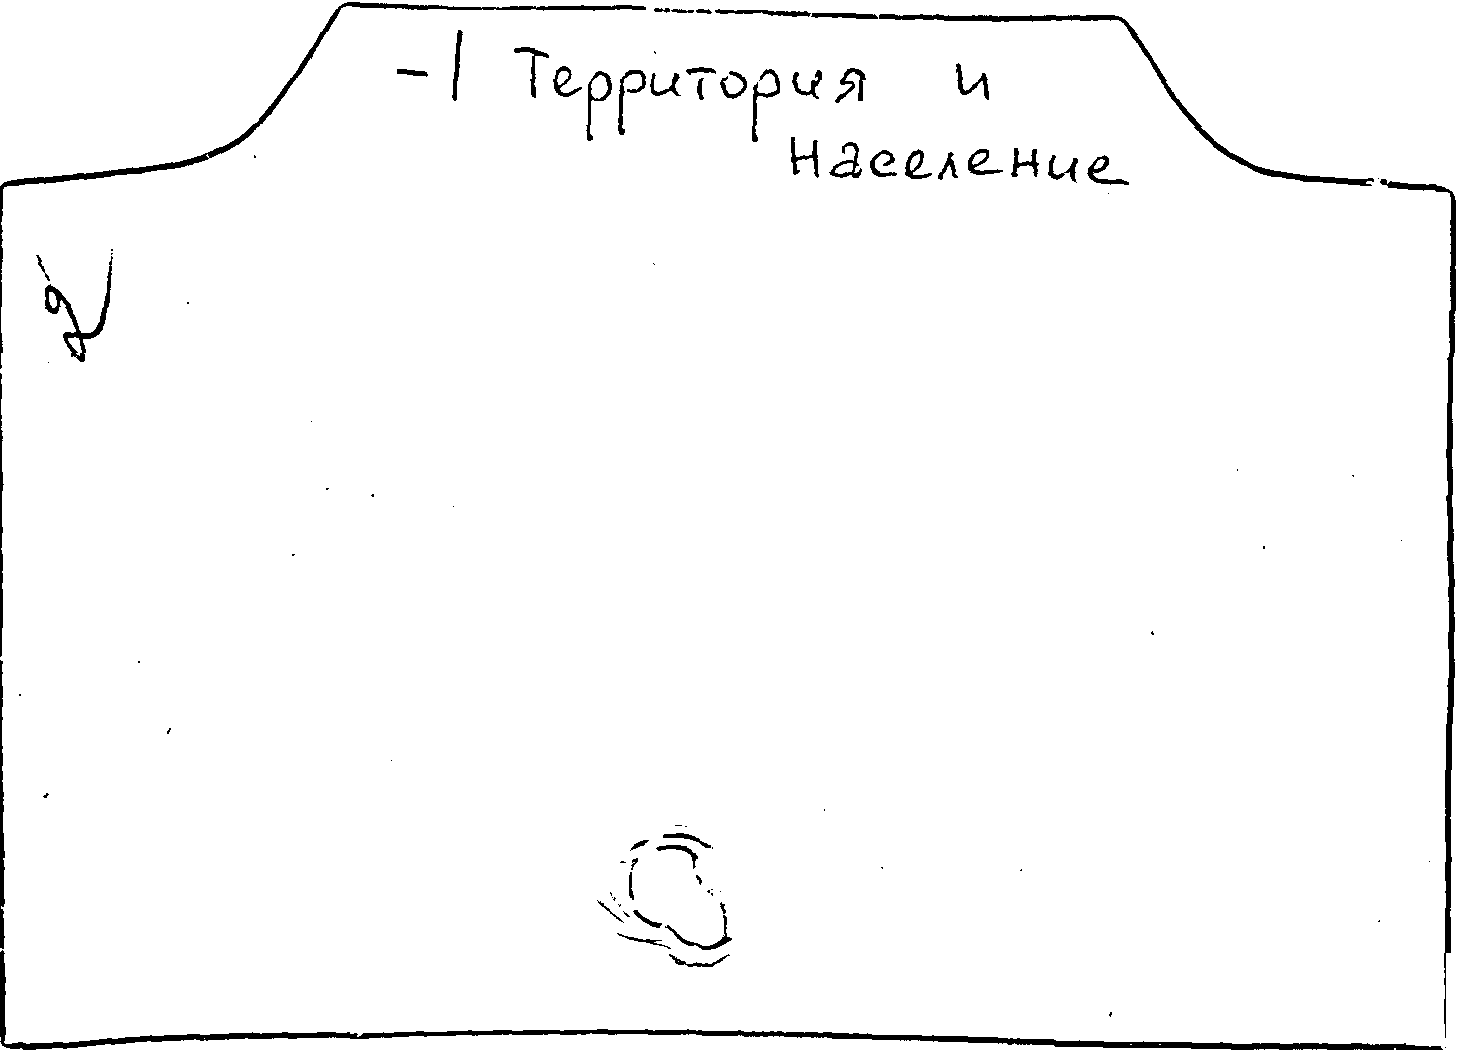 -1 Территория и
население